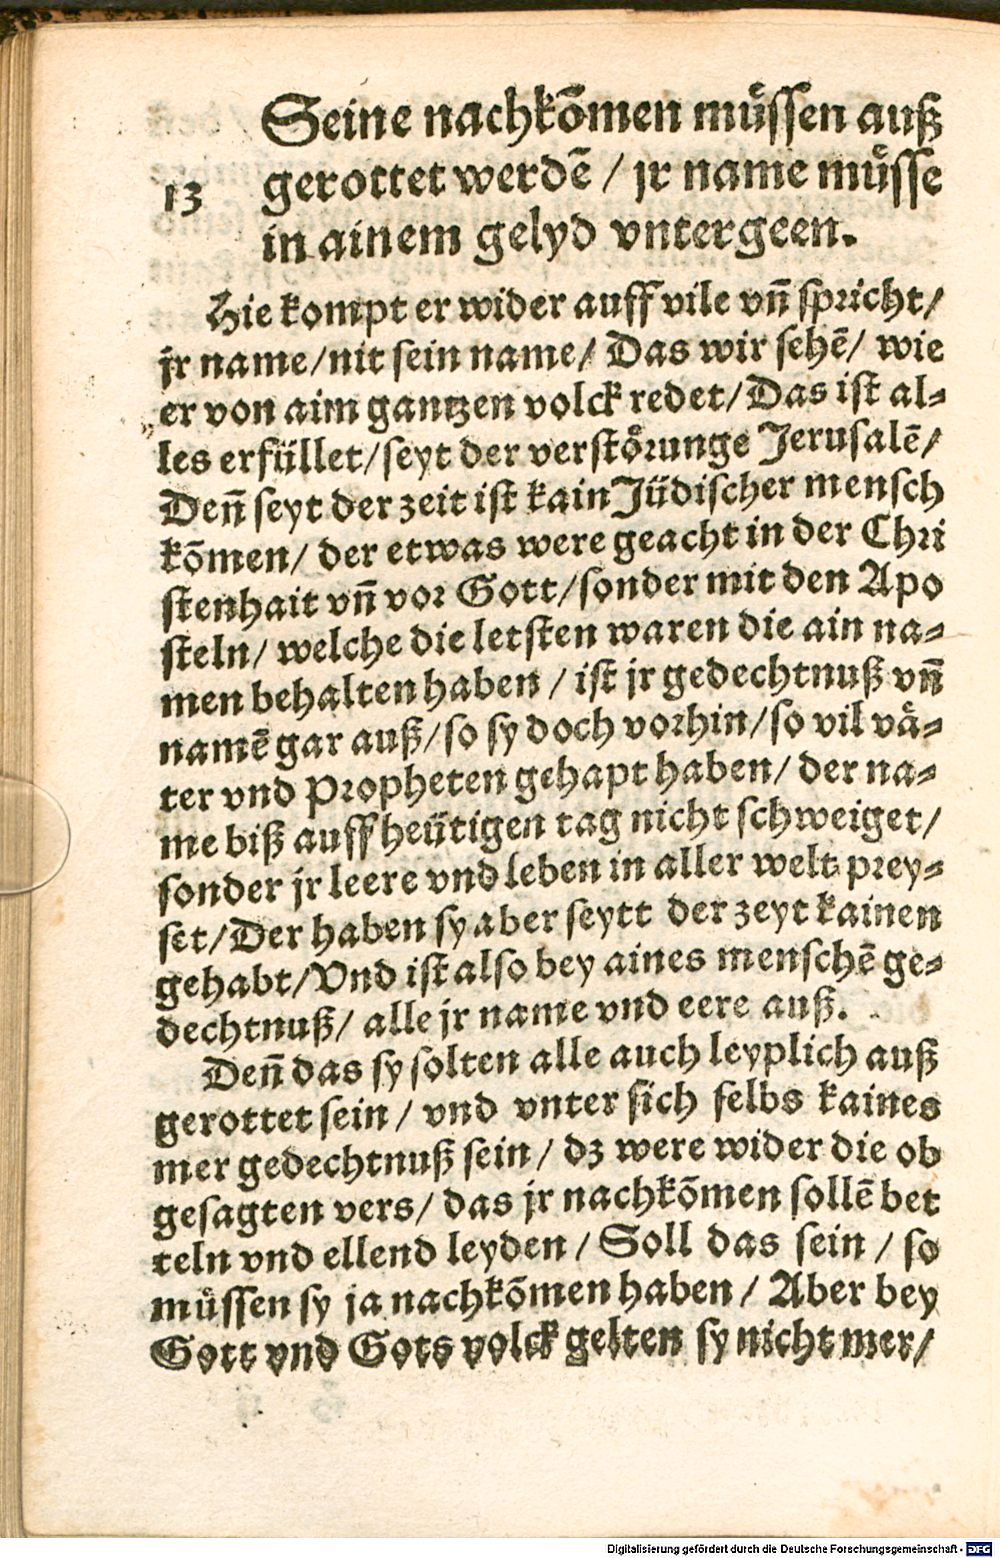 Seine nachkõmen muͤssen auß
gerottet werdẽ / jr name muͤsse
13
in ainem gelyd vntergeen.
Hie kompt er wider auff vile vñ spricht/
jr name/nit sein name/ Das wir sehẽ/ wie
er von aim gantzen volck redet/Das ist al⸗
les erfüllet/seyt der verstoͤrunge Jerusalẽ/
Deñ seyt der zeit ist kain Jüdischer mensch
kõmen/ der etwas were geacht in der Chri
stenhait vñ vor Gott/sonder mit den Apo
steln/ welche die letsten waren die ain na⸗
men behalten haben / ist jr gedechtnuß vñ
namẽ gar auß/so sy doch vorhin/so vil vaͤ⸗
ter vnd Propheten gehapt haben/ der na⸗
me biß auff heütigen tag nicht schweiget/
sonder jr leere vnd leben in aller welt prey⸗
set/Der haben sy aber seytt der zeyt kainen
gehabt/Vnd ist also bey aines menschẽ ge⸗
dechtnuß/ alle jr name vnd eere auß.
Deñ das sy solten alle auch leyplich auß
gerottet sein / vnd vnter sich selbs kaines
mer gedechtnuß sein / dz were wider die ob
gesagten vers/ das jr nachkõmen sollẽ bet
teln vnd ellend leyden / Soll das sein / so
muͤssen sy ja nachkõmen haben / Aber bey
Gott vnd Gots volck gelten sy nicht mer/
Digitalisierung gefördert durch die Deutsche Forschungsgemeinschaft - DFG